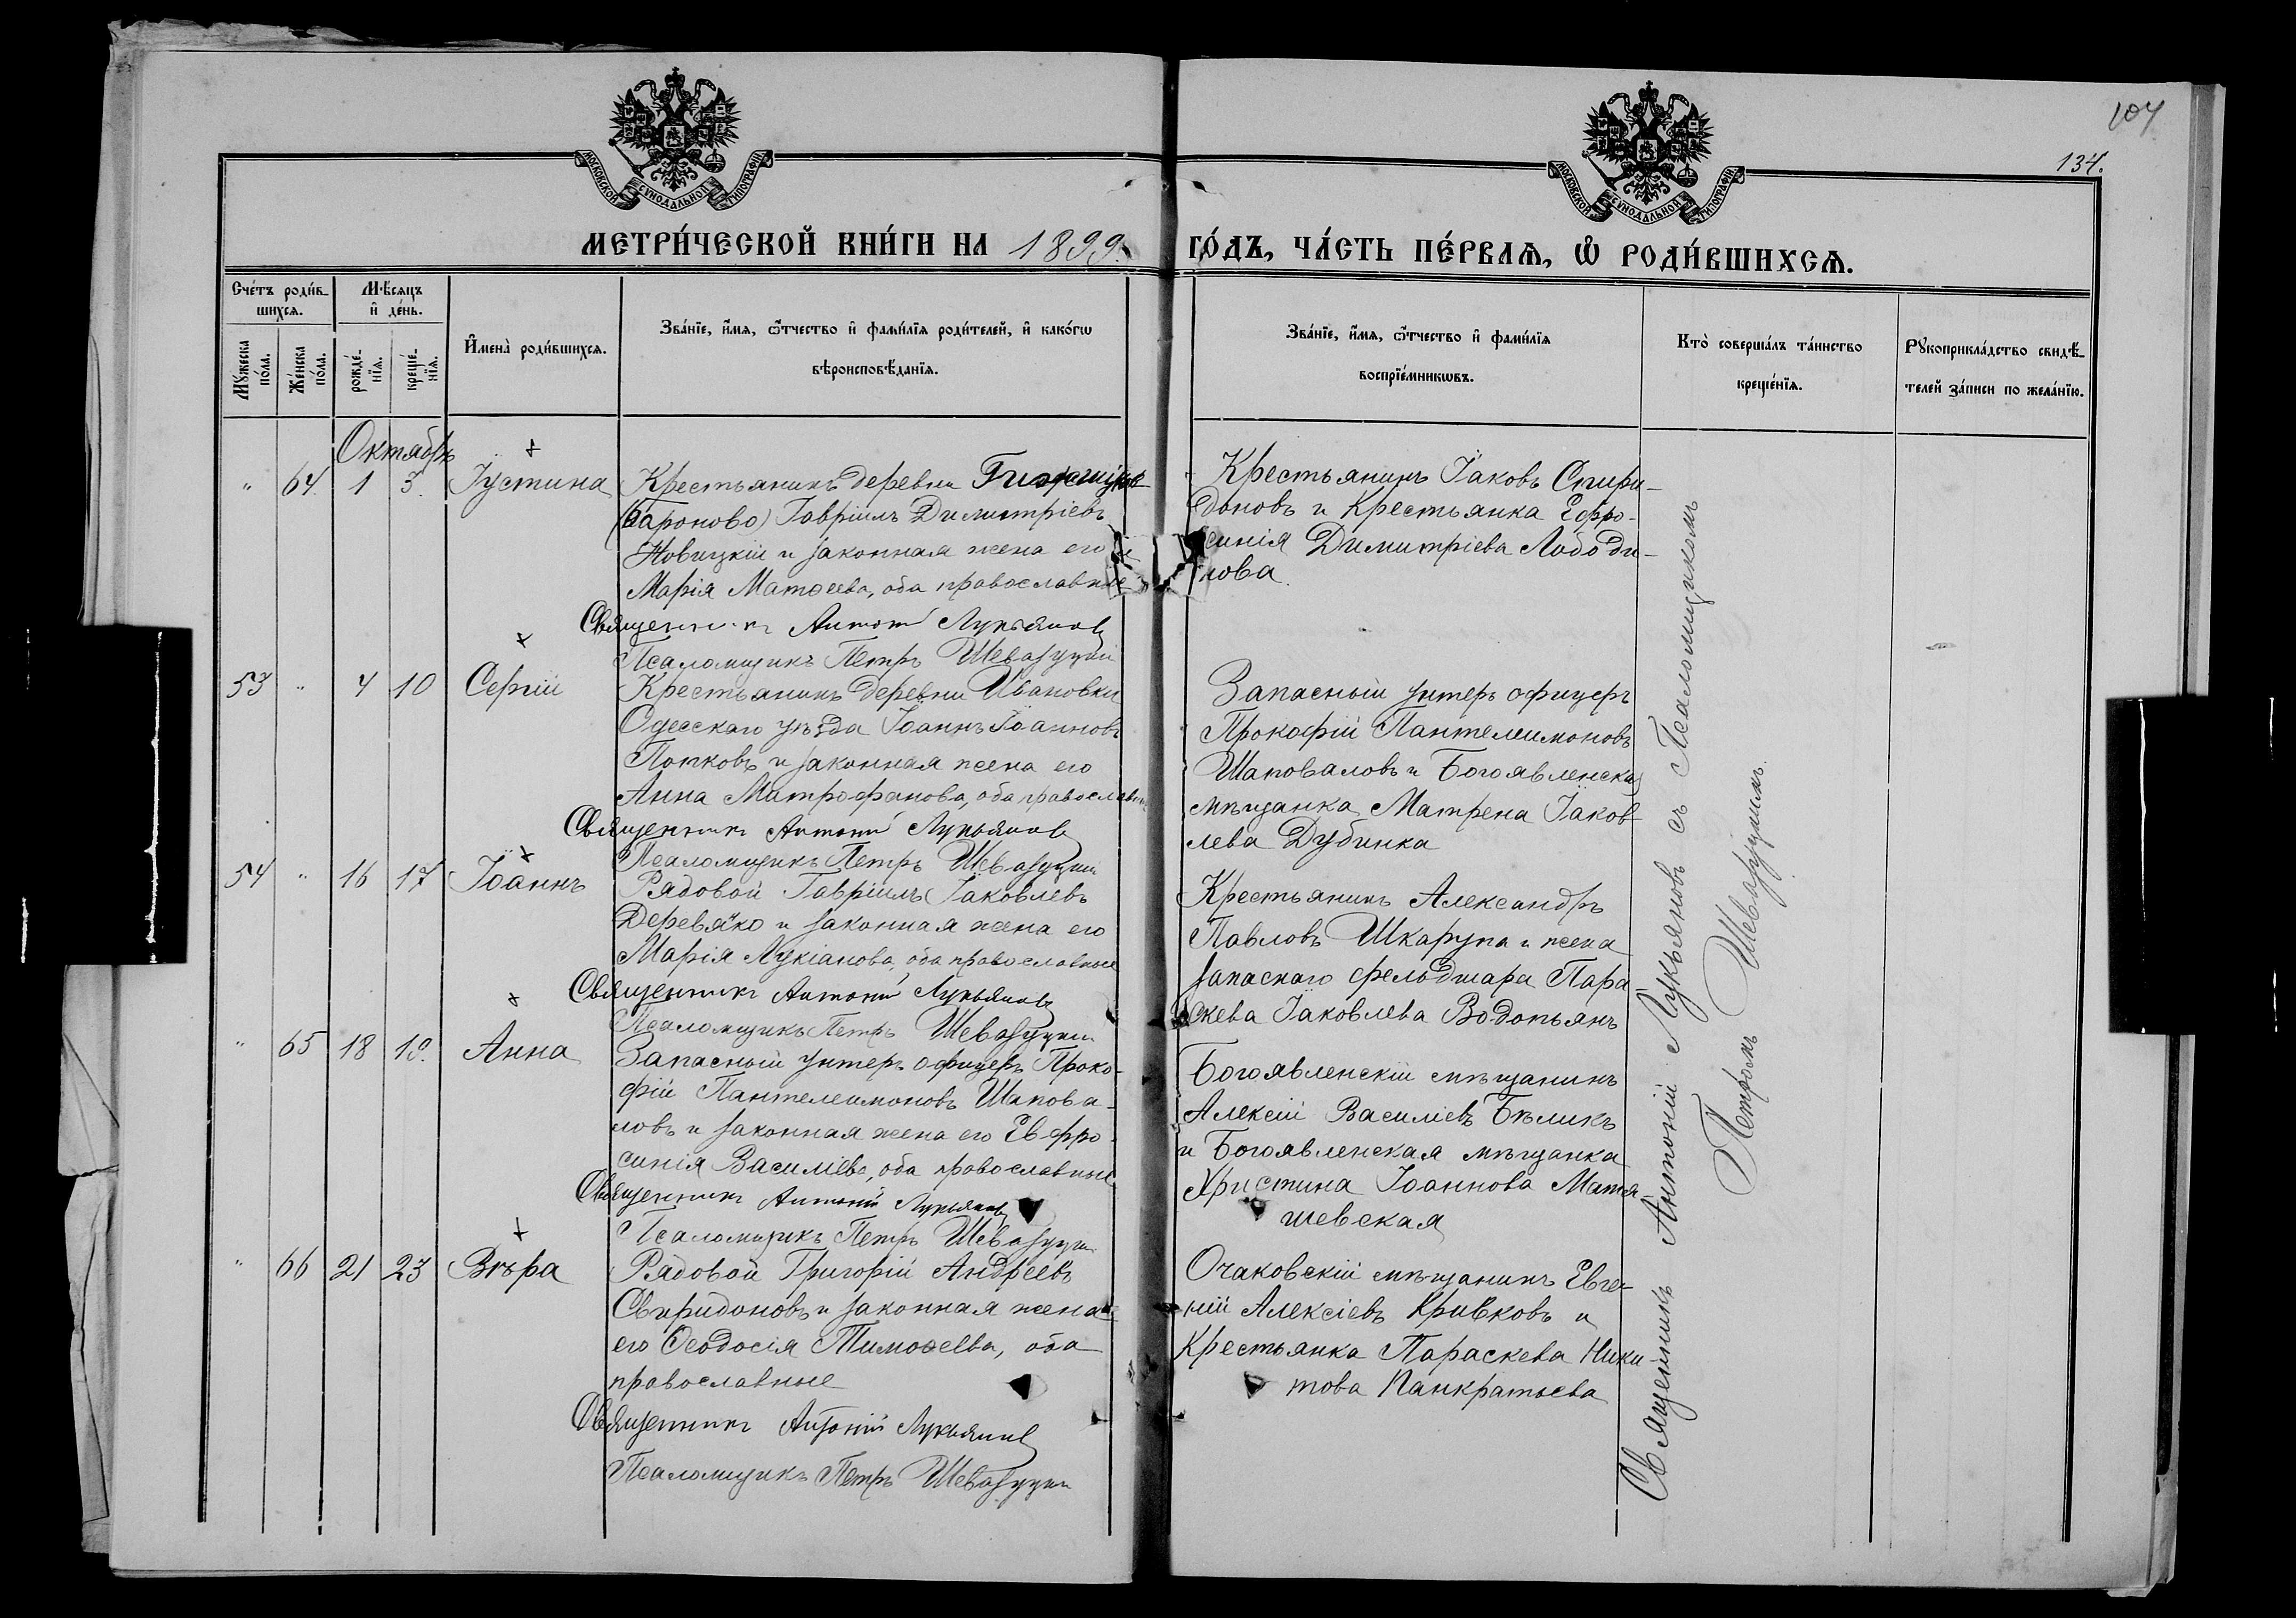 104
134.
МОСКОВСКОЙ СУНОДАЛЬНОЙ ТИПОГРАФІИ
МОСКОВСКОЙ СУНОДАЛЬНОЙ ТИПОГРАФІИ
МЕТРИ́ЧЕСКОЙ КНИ́ГИ НА 1899. ГО́ДЪ, ЧА́СТЬ ПЕ́РВАѦ, Ѡ҆ РОДИ́ВШИХСѦ.
Сче́тъ роди́в-
шихсѧ.
Мꙋ́жеска по́ла.
Же́нска по́ла.
Мѣ́сѧцъ
и҆ де́нь.
рожде́-
нїѧ.
креще́-
нїѧ.
И҆мена̀ роди́вшихсѧ.
Зва́нїе, и҆́мѧ, ѻ҆́тчество и҆ фамн́лїѧ роди́телей, и҆ како́гѡ
вѣроисповѣ́данїѧ.
Зва́нїе, и҆́мѧ, ѻ҆́тчество и҆ фами́лїѧ
воспрїе́мникѡвъ.
Кто̀ соверша́лъ та́инство
креще́нїѧ.
Рꙋкоприкла́дство свидѣ́-
телей за́писи по жела́нїю.
Октябрь
" 64. 1 3. Іустина
Крестьянинъ деревни
(Бароново) Гавріилъ Димитріевъ
Новицкій и законная жена его
Марія Матѳеева, оба православные
Священникъ Антоній Лукьяновъ
Псаломщикъ Петръ Шевазуцкій
Крестьянинъ Іаковъ Спири-
доновъ и Крестьянка Ефро-
синія Димитріева Лободи-
нова.
53 " 4 10 Сергій
Крестьянинъ деревни Ивановки
Одесскаго уѣзда Іоаннъ Іоанновъ
Потковъ и законная жена его
Анна Митрофанова, оба православные
Священникъ Антоній Лукьяновъ
Псаломщикъ Петръ Шевазуцкій
Запасный унтеръ офицеръ
Прокофій Пантелеимоновъ
Шаповаловъ и Богоявленская
мѣщанка Матрена Іаков-
лева Дубинка
54 " 16 17 Іоаннъ
Рядовой Гавріилъ Іаковлевъ
Деревяко и законная жена его
Марія Лукіанова, оба православные
Священникъ Антоній Лукьяновъ
Псаломщикъ Петръ Шевазуцкій
Крестьянинъ Александръ
Павловъ Шкарупа и жена
запаснаго фельдшера Пара
скева Іаковлева Водопьянъ
" 65 18 19. Анна
Запасный унтеръ офицеръ Проко-
фій Пантелеимоновъ Шапова-
ловъ и законная жена его Евфро-
синія Василіева, оба православные
Священникъ Антоній Лукьяновъ
Псаломщикъ Петръ Шевазуцкій
Богоявленскій мѣщанинъ
Алексій Василіевъ Бѣликъ
и Богоявленская мѣщанка
Христина Іоаннова Матя-
шевская
" 66 21 23 Вѣра
Рядовой Григорій Андреевъ
Свиридоновъ и законная жена
его Ѳеодосія Тимоѳеева, оба
православные
Священникъ Антоній Лукьяновъ
Псаломщикъ Петръ Шевазуцкій
Очаковскій мѣщанинъ Евге-
ній Алексіевъ Кривковъ и
Крестьянка Параскева Ники-
това Панкратьева
Священникъ Антоній Лукьяновъ съ Псаломщикомъ
Петромъ Шевазуцкимъ.